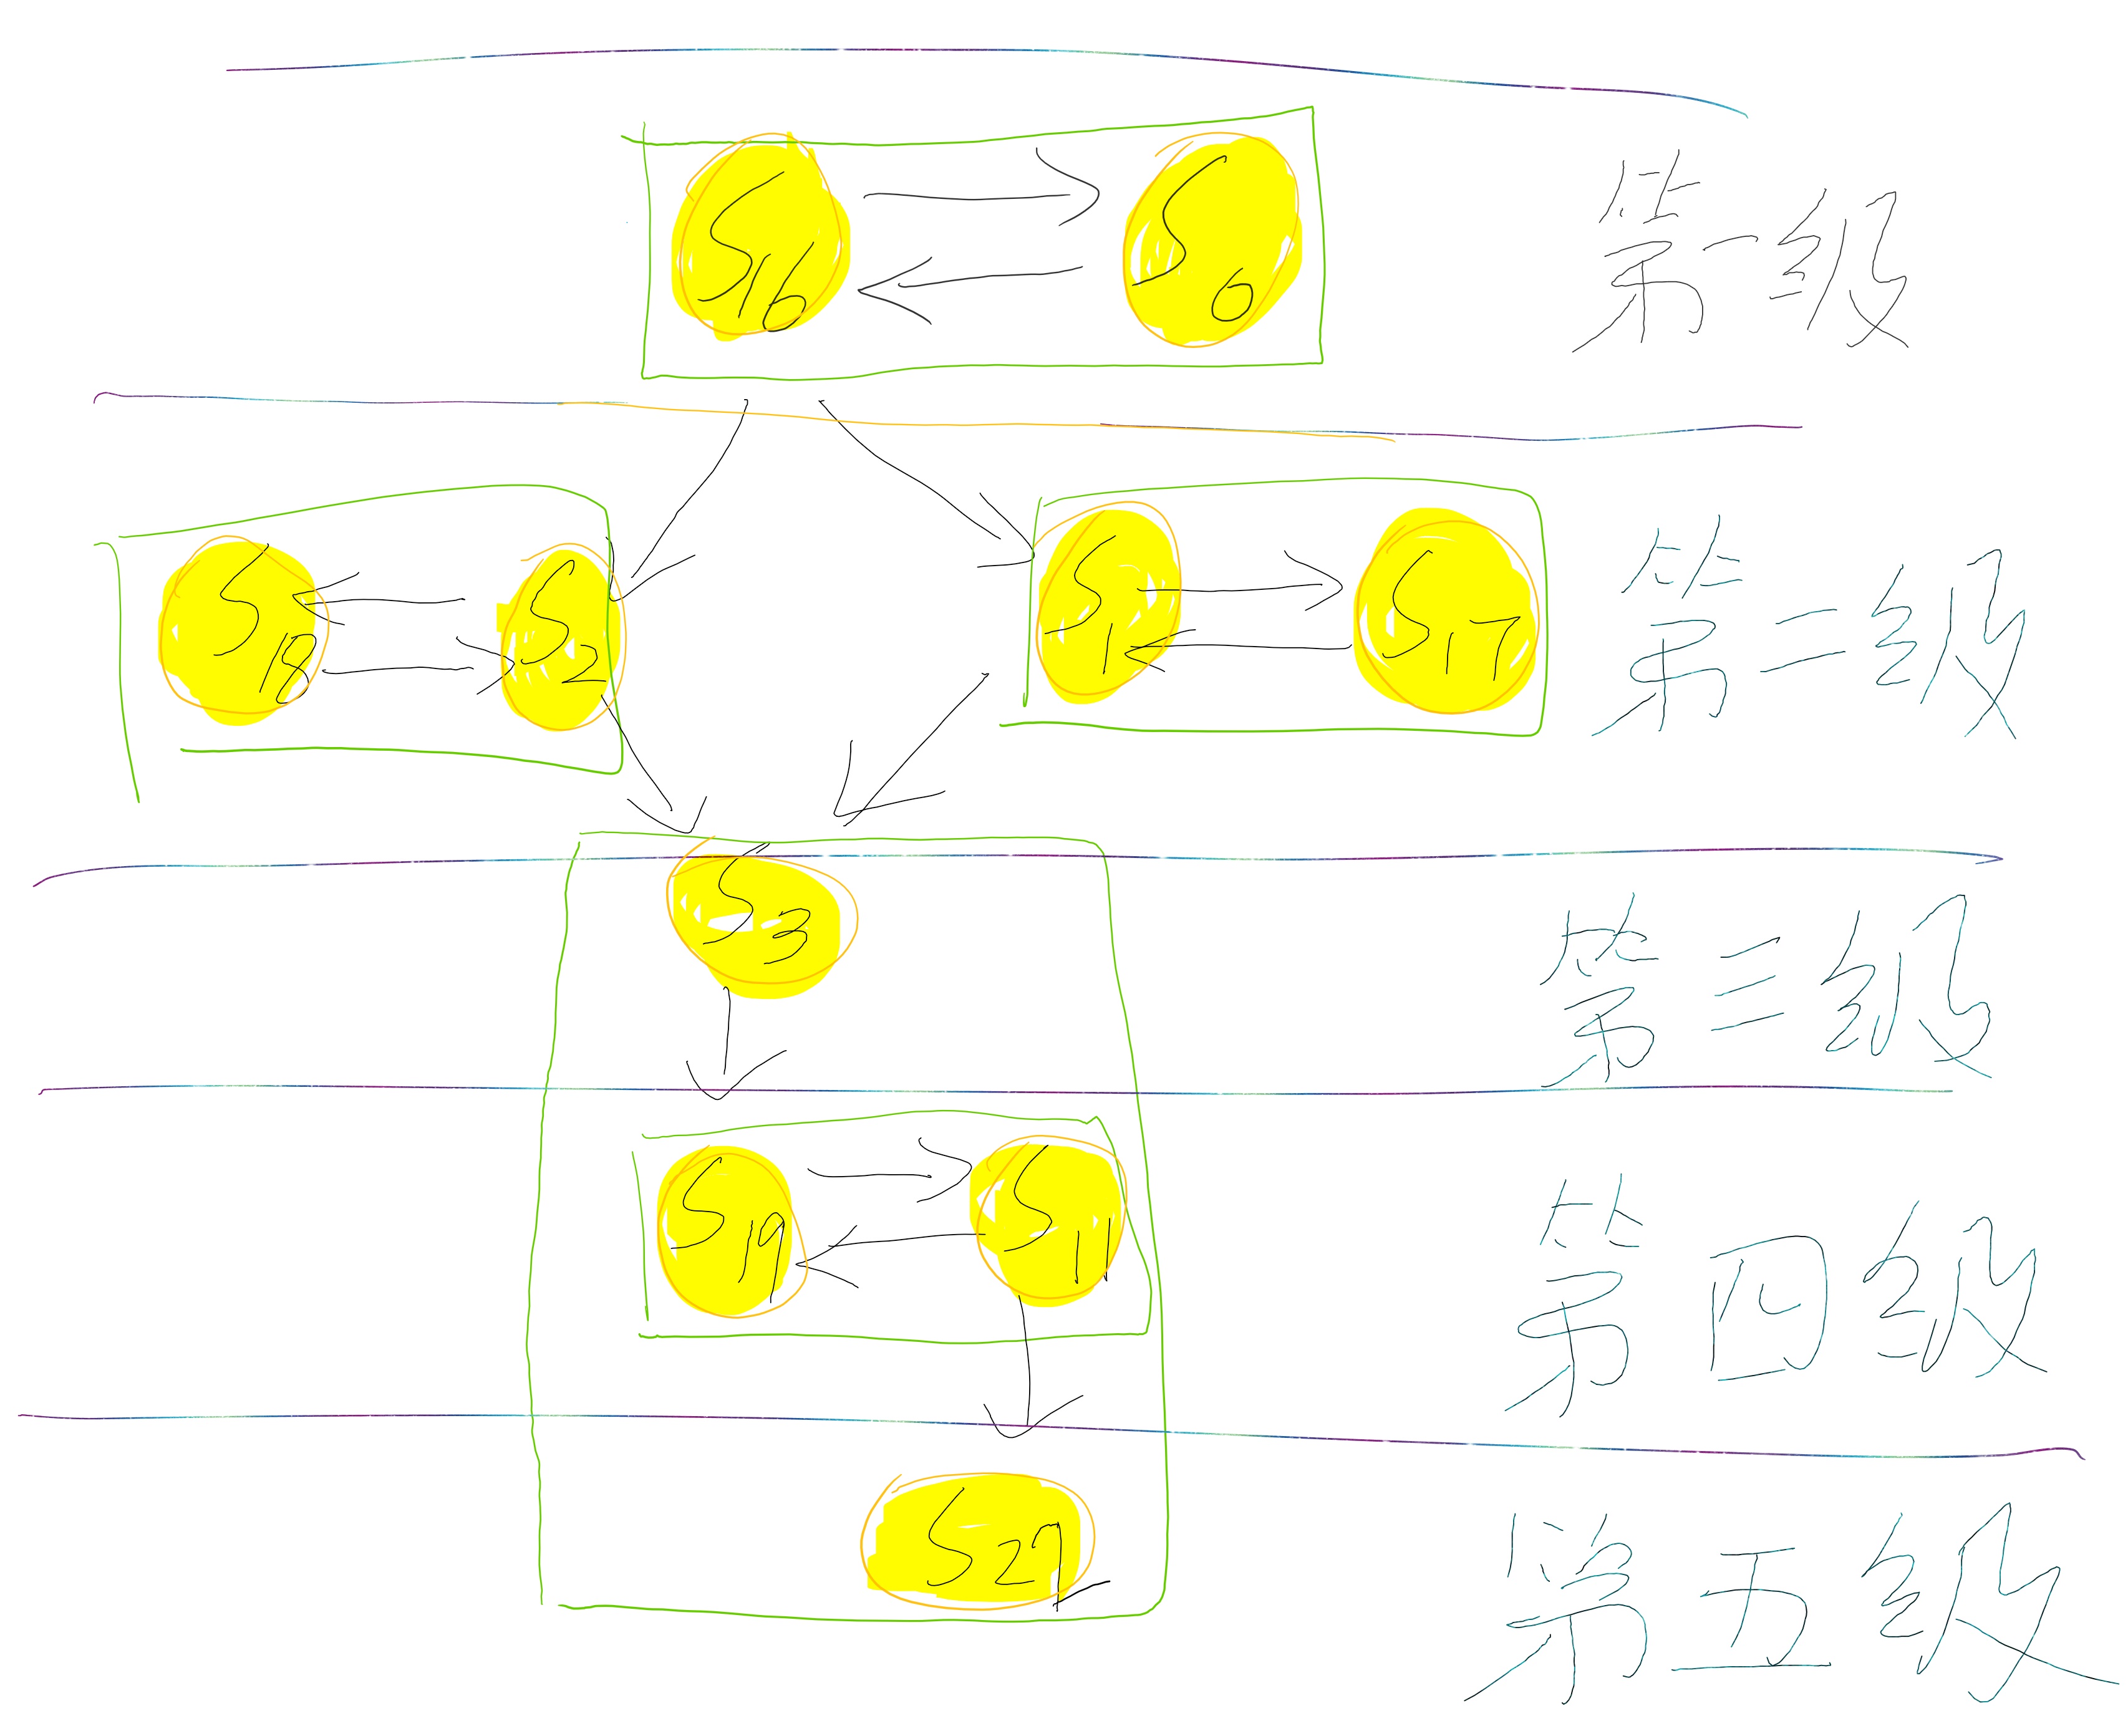 S16 S0 第一级
S18 S2 S1 S17 第二级
S3 第三级
S19 S11 第四级
第五级